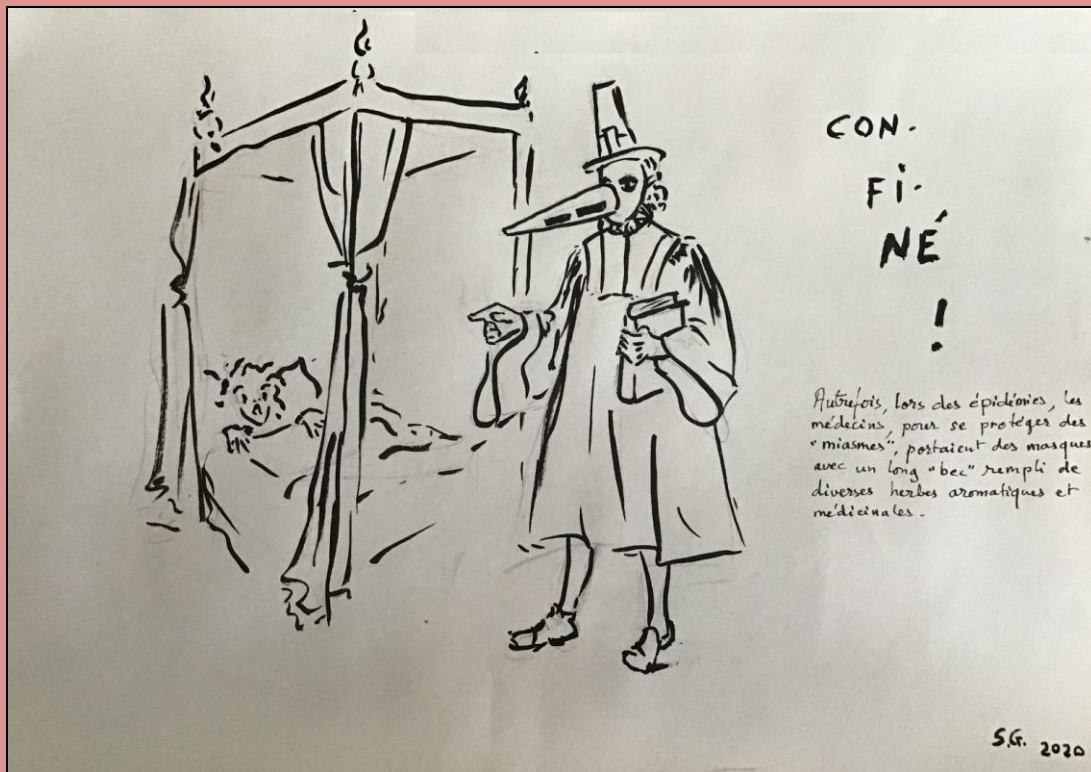 CON-
FI-
NÉ
!
Autrefois, lors des épidémies, les
médecins, pour se protéger des
"miasmes", portaient des masques
avec un long "bec" rempli de
diverses herbes aromatiques et
médicinales.
S.G. 2020